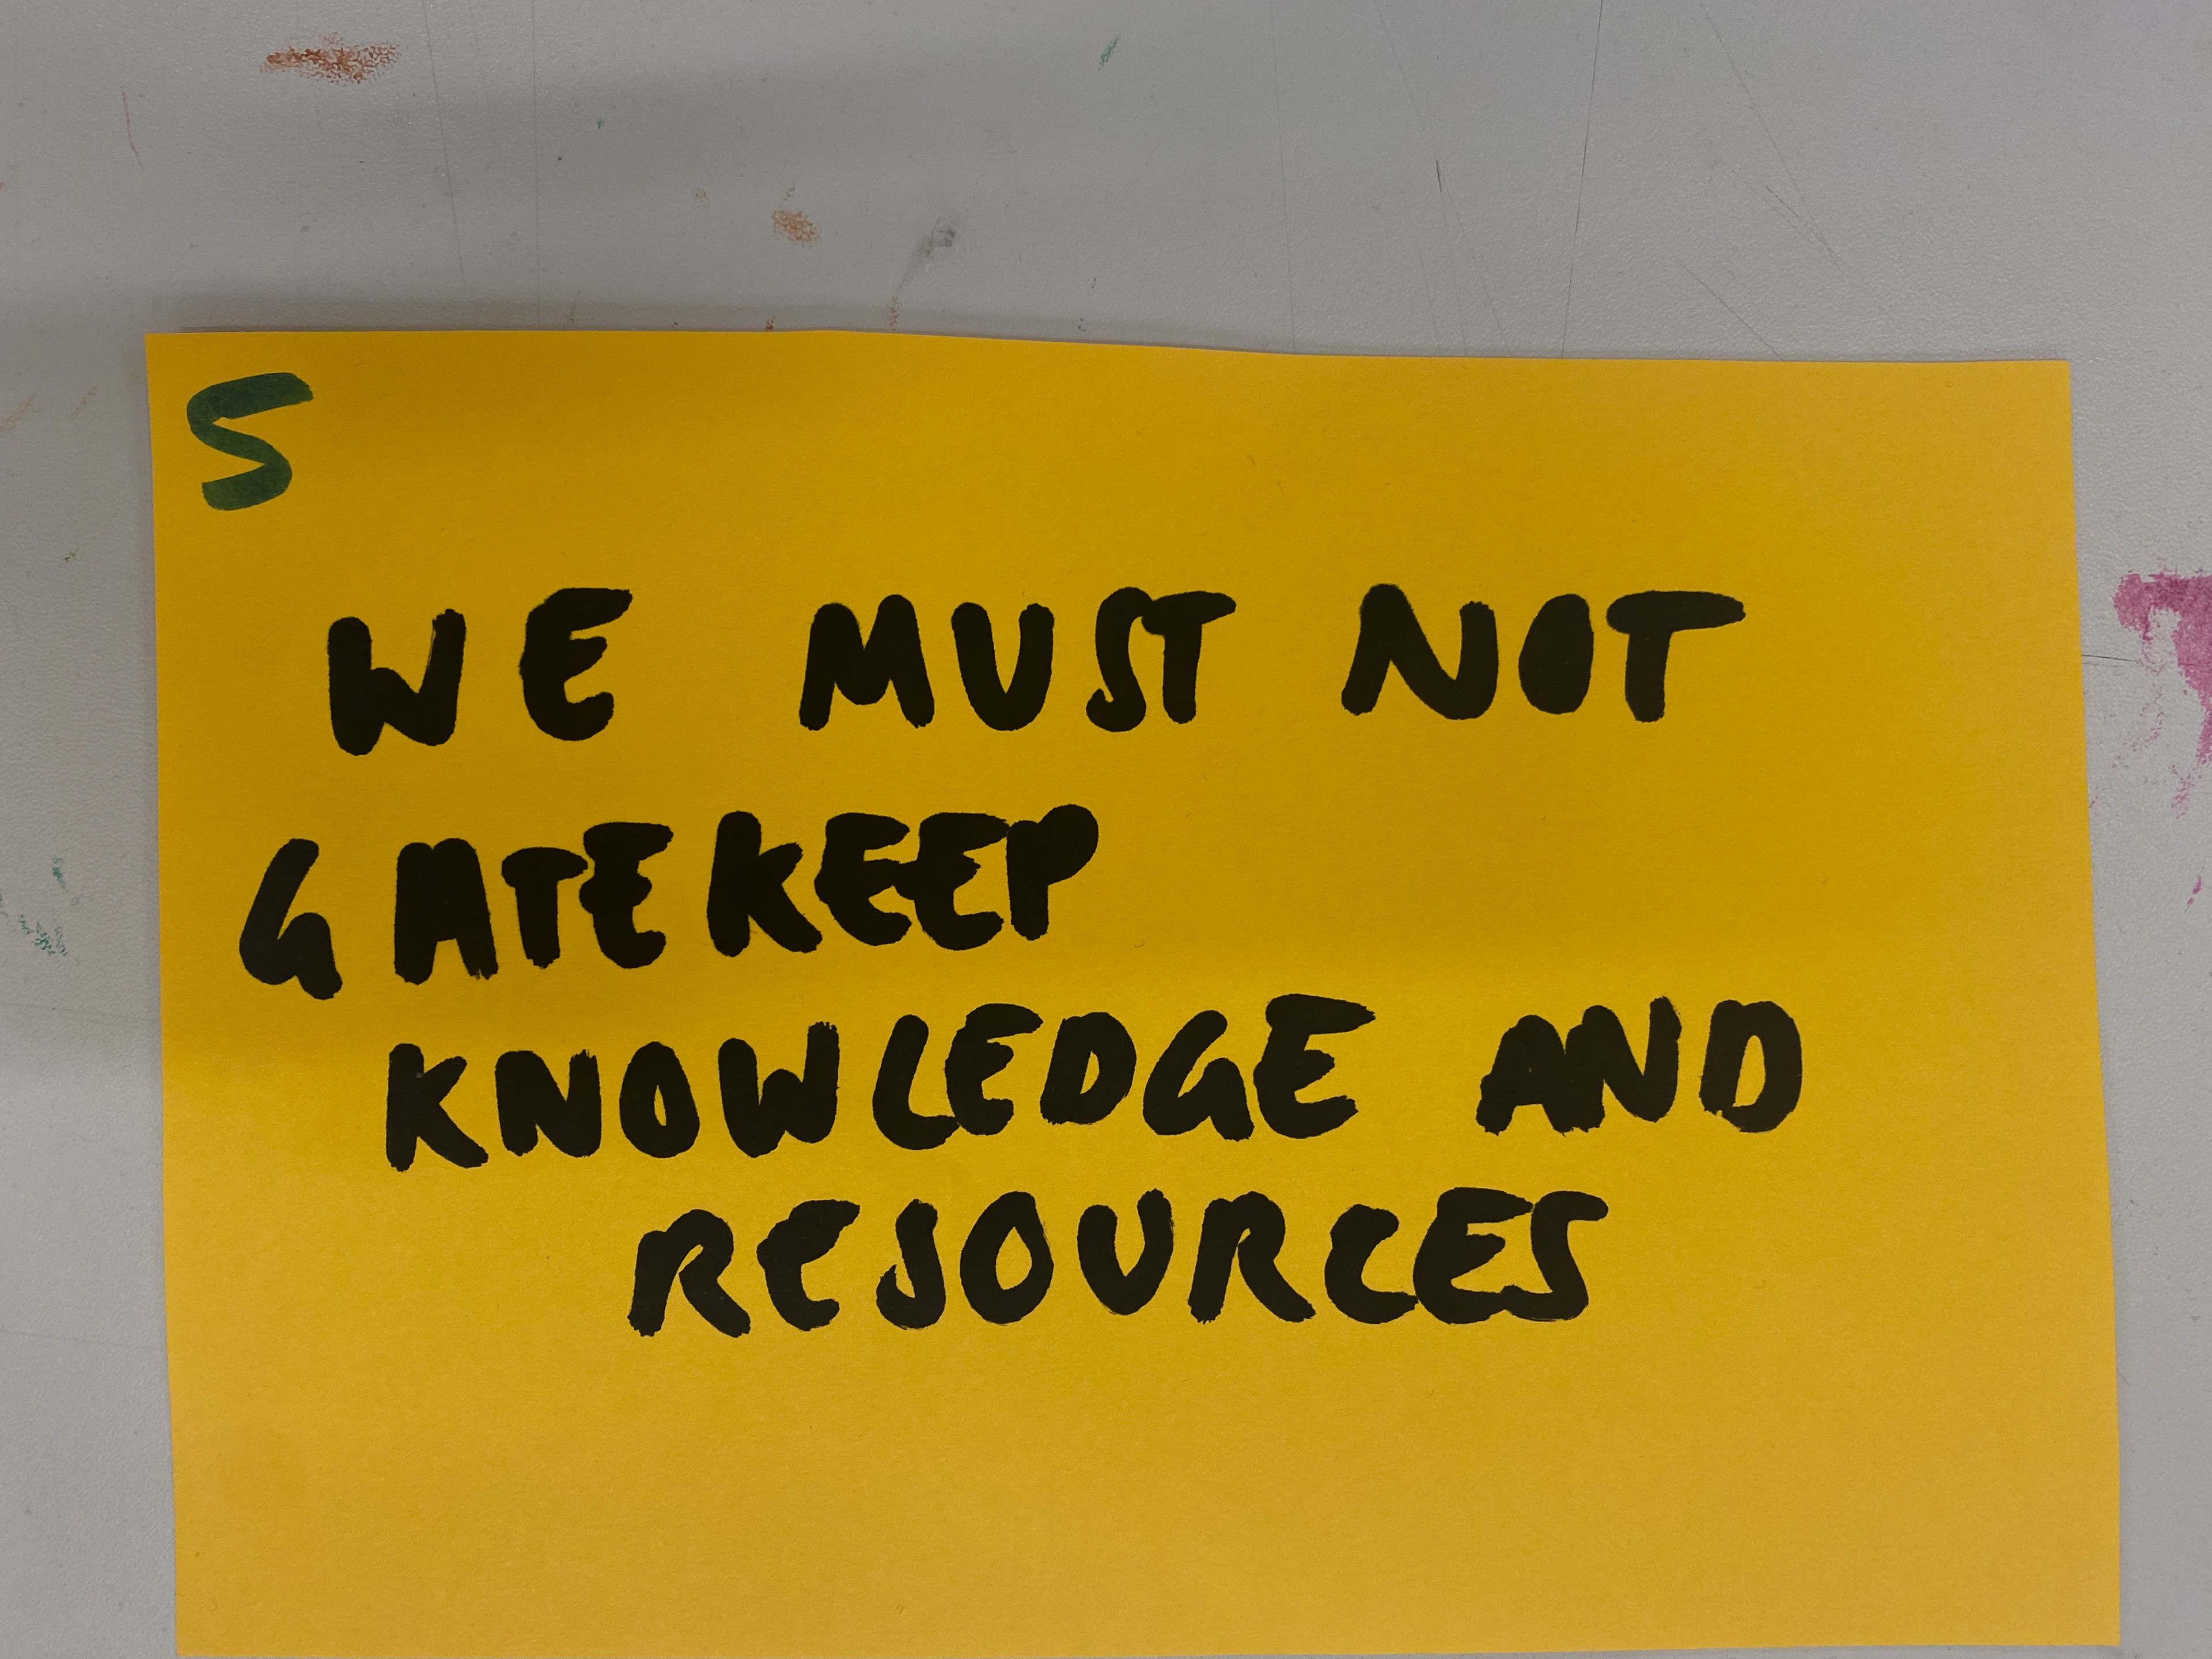 S
WE MUST NOT
GATEKEEP
KNOWLEDGE AND
RESOURCES